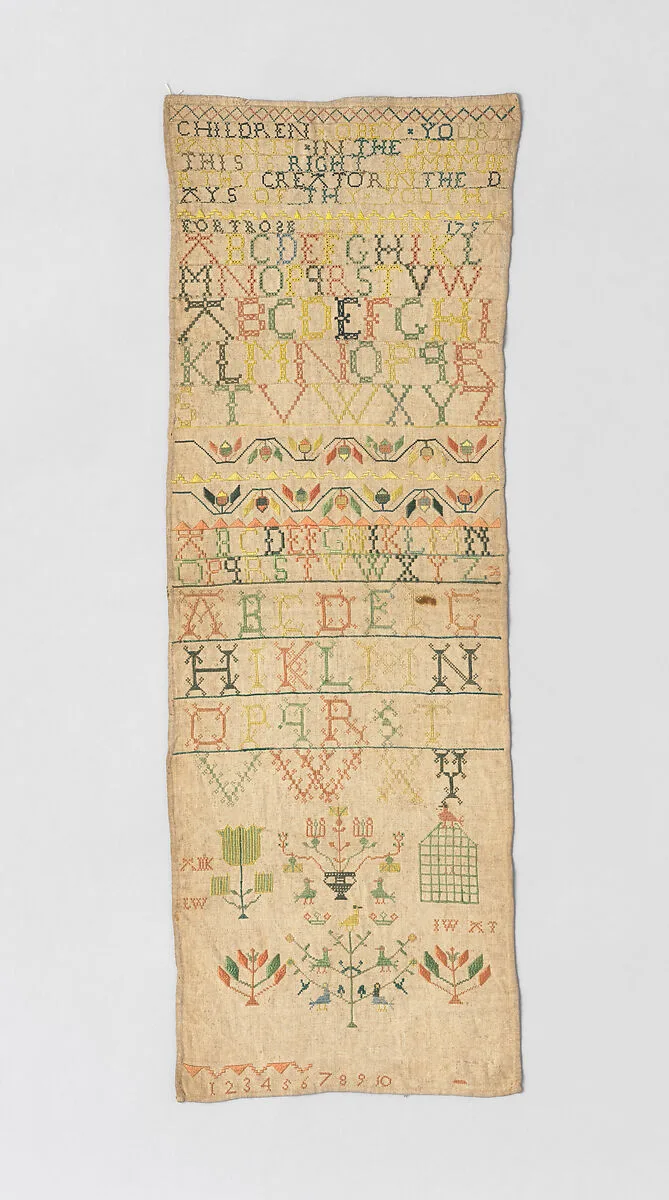 CHILDREN OBEY YOUR
PARENTS IN THE LORD
THIS IS RIGHT REMEMBE
R THY CREATOR IN THE D
AYS OF THY YOUTH
FORTROSE 1797
A B C D E F G H I K L
M N O P q R S T V W
A B C D E F G H I
K L M N O P q R
S T V W X Y Z
A B C D E F G H I K L M N
O P q R S T V W X Y Z
A B C D E F G
H I K L M N
O P q R S T
V W X Y
LW
IW AT
1 2 3 4 5 6 7 8 9 10